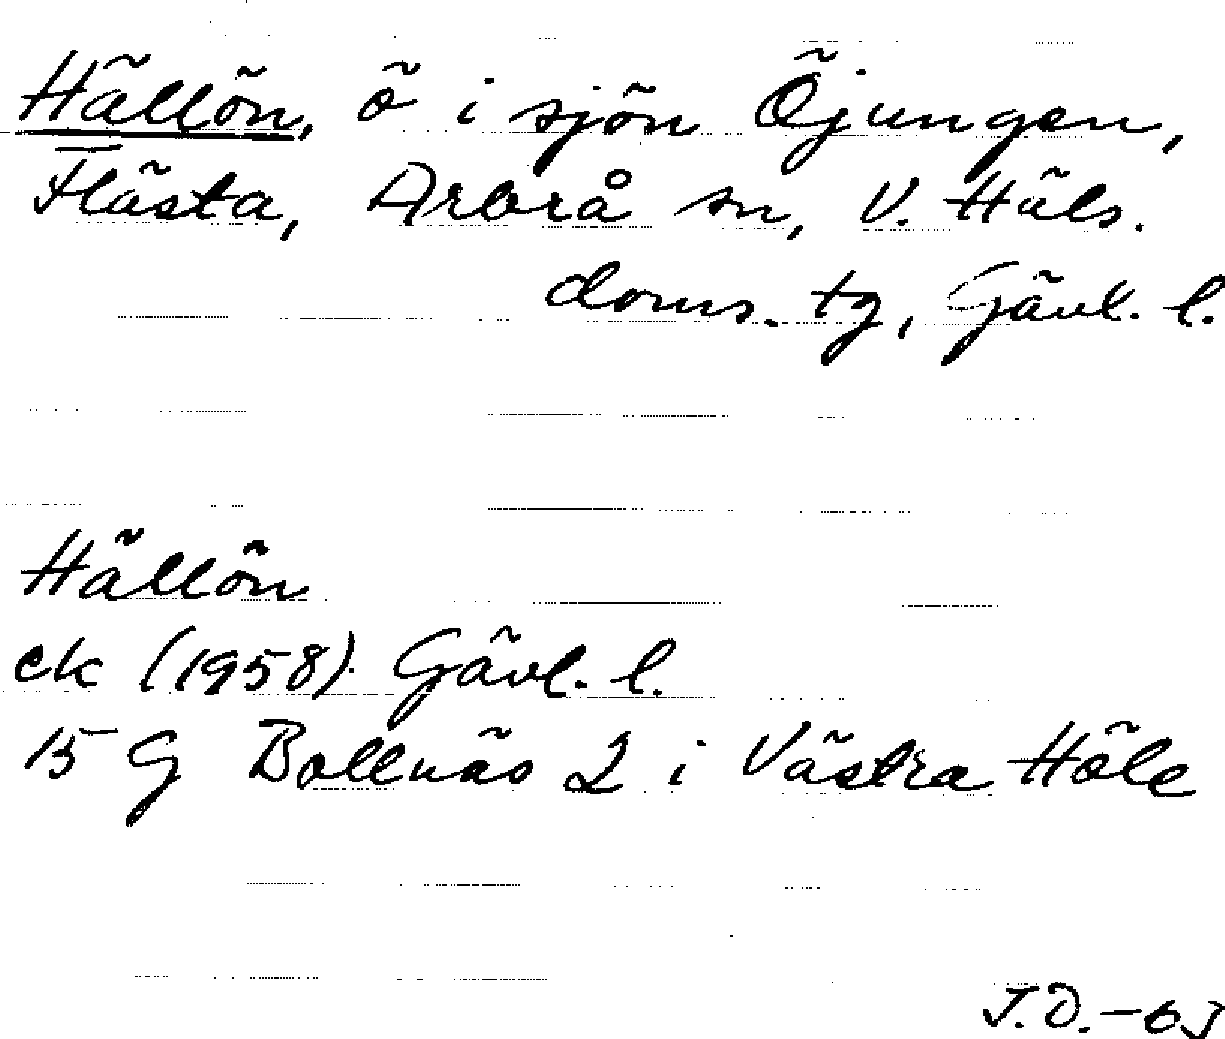 Hällön, ö i sjön Öjungen,
Flästa, Arbrå sn, V. Häls.
doms. tg, Gävl. l.
Hällön
ek (1958) Gävl. l.
15 G Bollnäs 2 i Västra Häls
J.D.-63